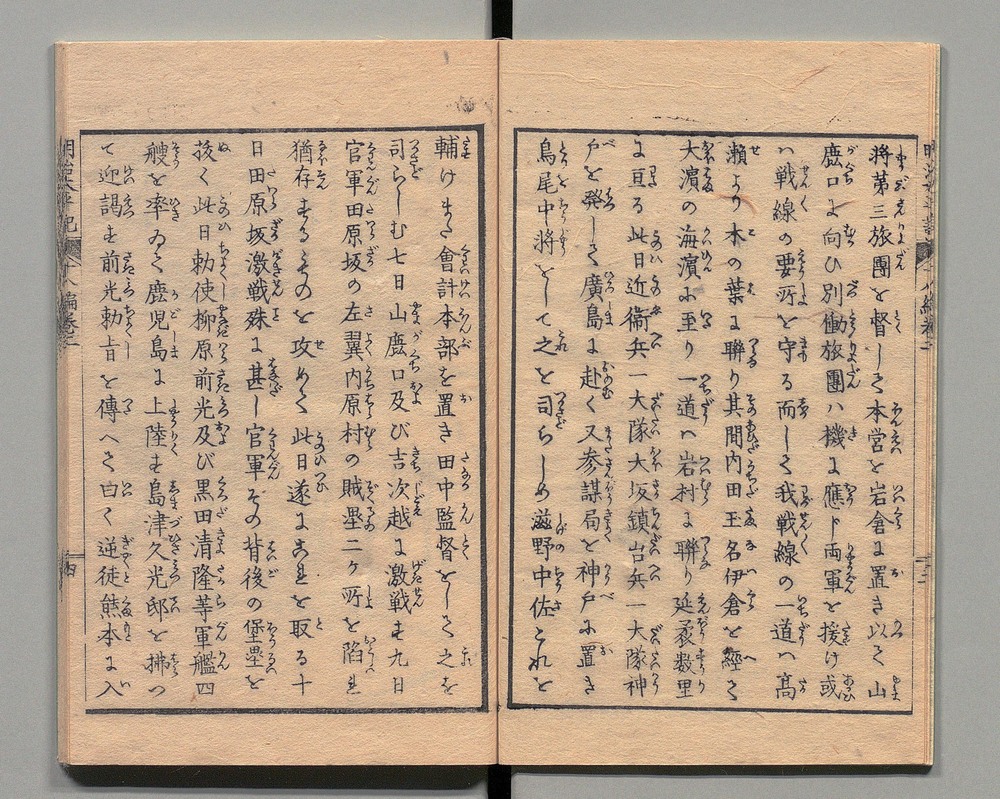 将第三旅團を督して本営を岩倉に置き以て山
鹿口に向ひ別働旅團ハ機に應ド両軍を援け或
ハ戦線の要所を守る而して我戦線の一道ハ高
瀬より木の葉に聨り其間内田玉名伊倉を經て
大濵の海濵に至り一道ハ岩村に聨り延袤数里
に亘る此日近衞兵一大隊大坂鎮台兵一大隊神
戸を発して廣島に赴く又参謀局を神戸に置き
鳥尾中将をして之を司らしめ滋野中佐これを
輔けまた會計本部を置き田中監督をして之を
司らしむ七日山鹿口及び吉次越に激戦す九日
官軍田原坂の左翼内原村の賊塁二ヶ所を陷ま
猶存するものを攻めて此日遂に之を取る十
日田原坂激戦殊に甚し官軍その背後の堡塁を
抜く此日勅使柳原前光及び黒田清隆等軍艦四
艘を率ゐて鹿児島に上陸す島津久光邸を掃つ
て迎謁す前光勅旨を傳へて曰く逆徒熊本に入
十八編巻二
十四